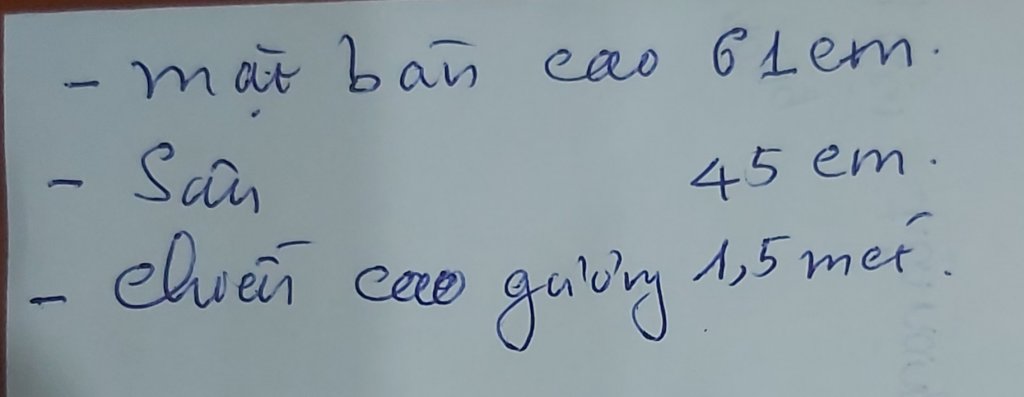 - mặt bàn cao 61cm.
- Sâu 45 cm.
- chiều cao gương 1,5 mét.